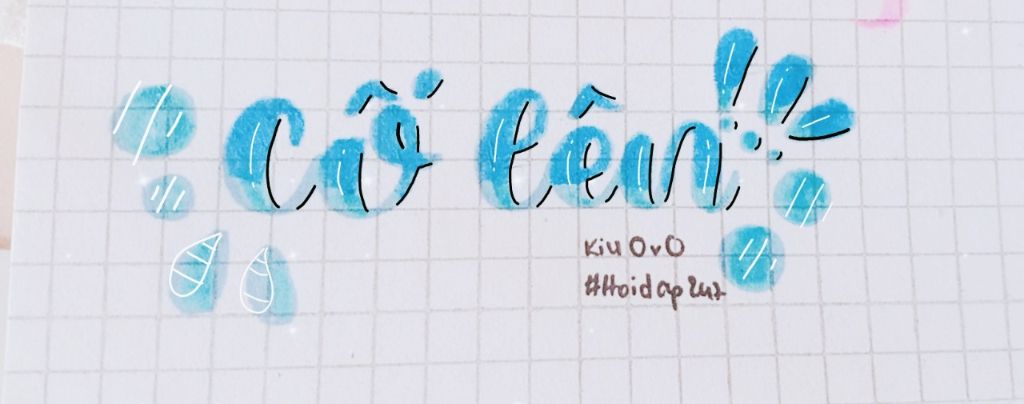 Cố lên!!!
Kiu OvO
#Hoidap247